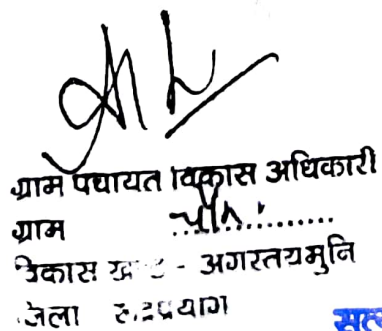 ग्राम पंचायत विकास अधिकारी
ग्राम ..............
विकास खण्ड - अगस्तयमुनि
जिला रुद्रप्रयाग